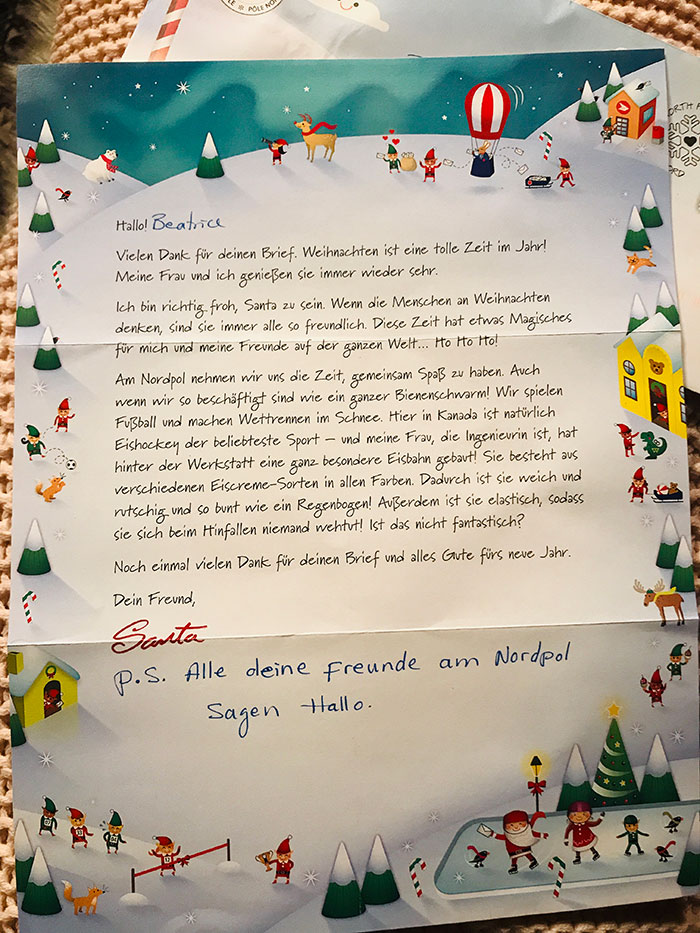 PÔLE NO
ORTH P
Hallo! Beatrice
Vielen Dank für deinen Brief. Weihnachten ist eine tolle Zeit im Jahr!
Meine Frau und ich genießen sie immer wieder sehr.
Ich bin richtig froh, Santa zu sein. Wenn die Menschen an Weihnachten
denken, sind sie immer alle so freundlich. Diese Zeit hat etwas Magisches
für mich und meine Freunde auf der ganzen Welt... Ho Ho Ho!
Am Nordpol nehmen wir uns die Zeit, gemeinsam Spaß zu haben. Auch
wenn wir so beschäftigt sind wie ein ganzer Bienenschwarm! Wir spielen
Fußball und machen Wettrennen im Schnee. Hier in Kanada ist natürlich
Eishockey der beliebteste Sport – und meine Frau, die Ingenieurin ist, hat
hinter der Werkstatt eine ganz besondere Eisbahn gebaut! Sie besteht aus
verschiedenen Eiscreme-Sorten in allen Farben. Dadurch ist sie weich und
rutschig und so bunt wie ein Regenbogen! Außerdem ist sie elastisch, sodass
sie sich beim Hinfallen niemand wehtut! Ist das nicht fantastisch?
Noch einmal vielen Dank für deinen Brief und alles Gute fürs neue Jahr.
Dein Freund,
Santa
P.S. Alle deine Freunde am Nordpol
Sagen Hallo.